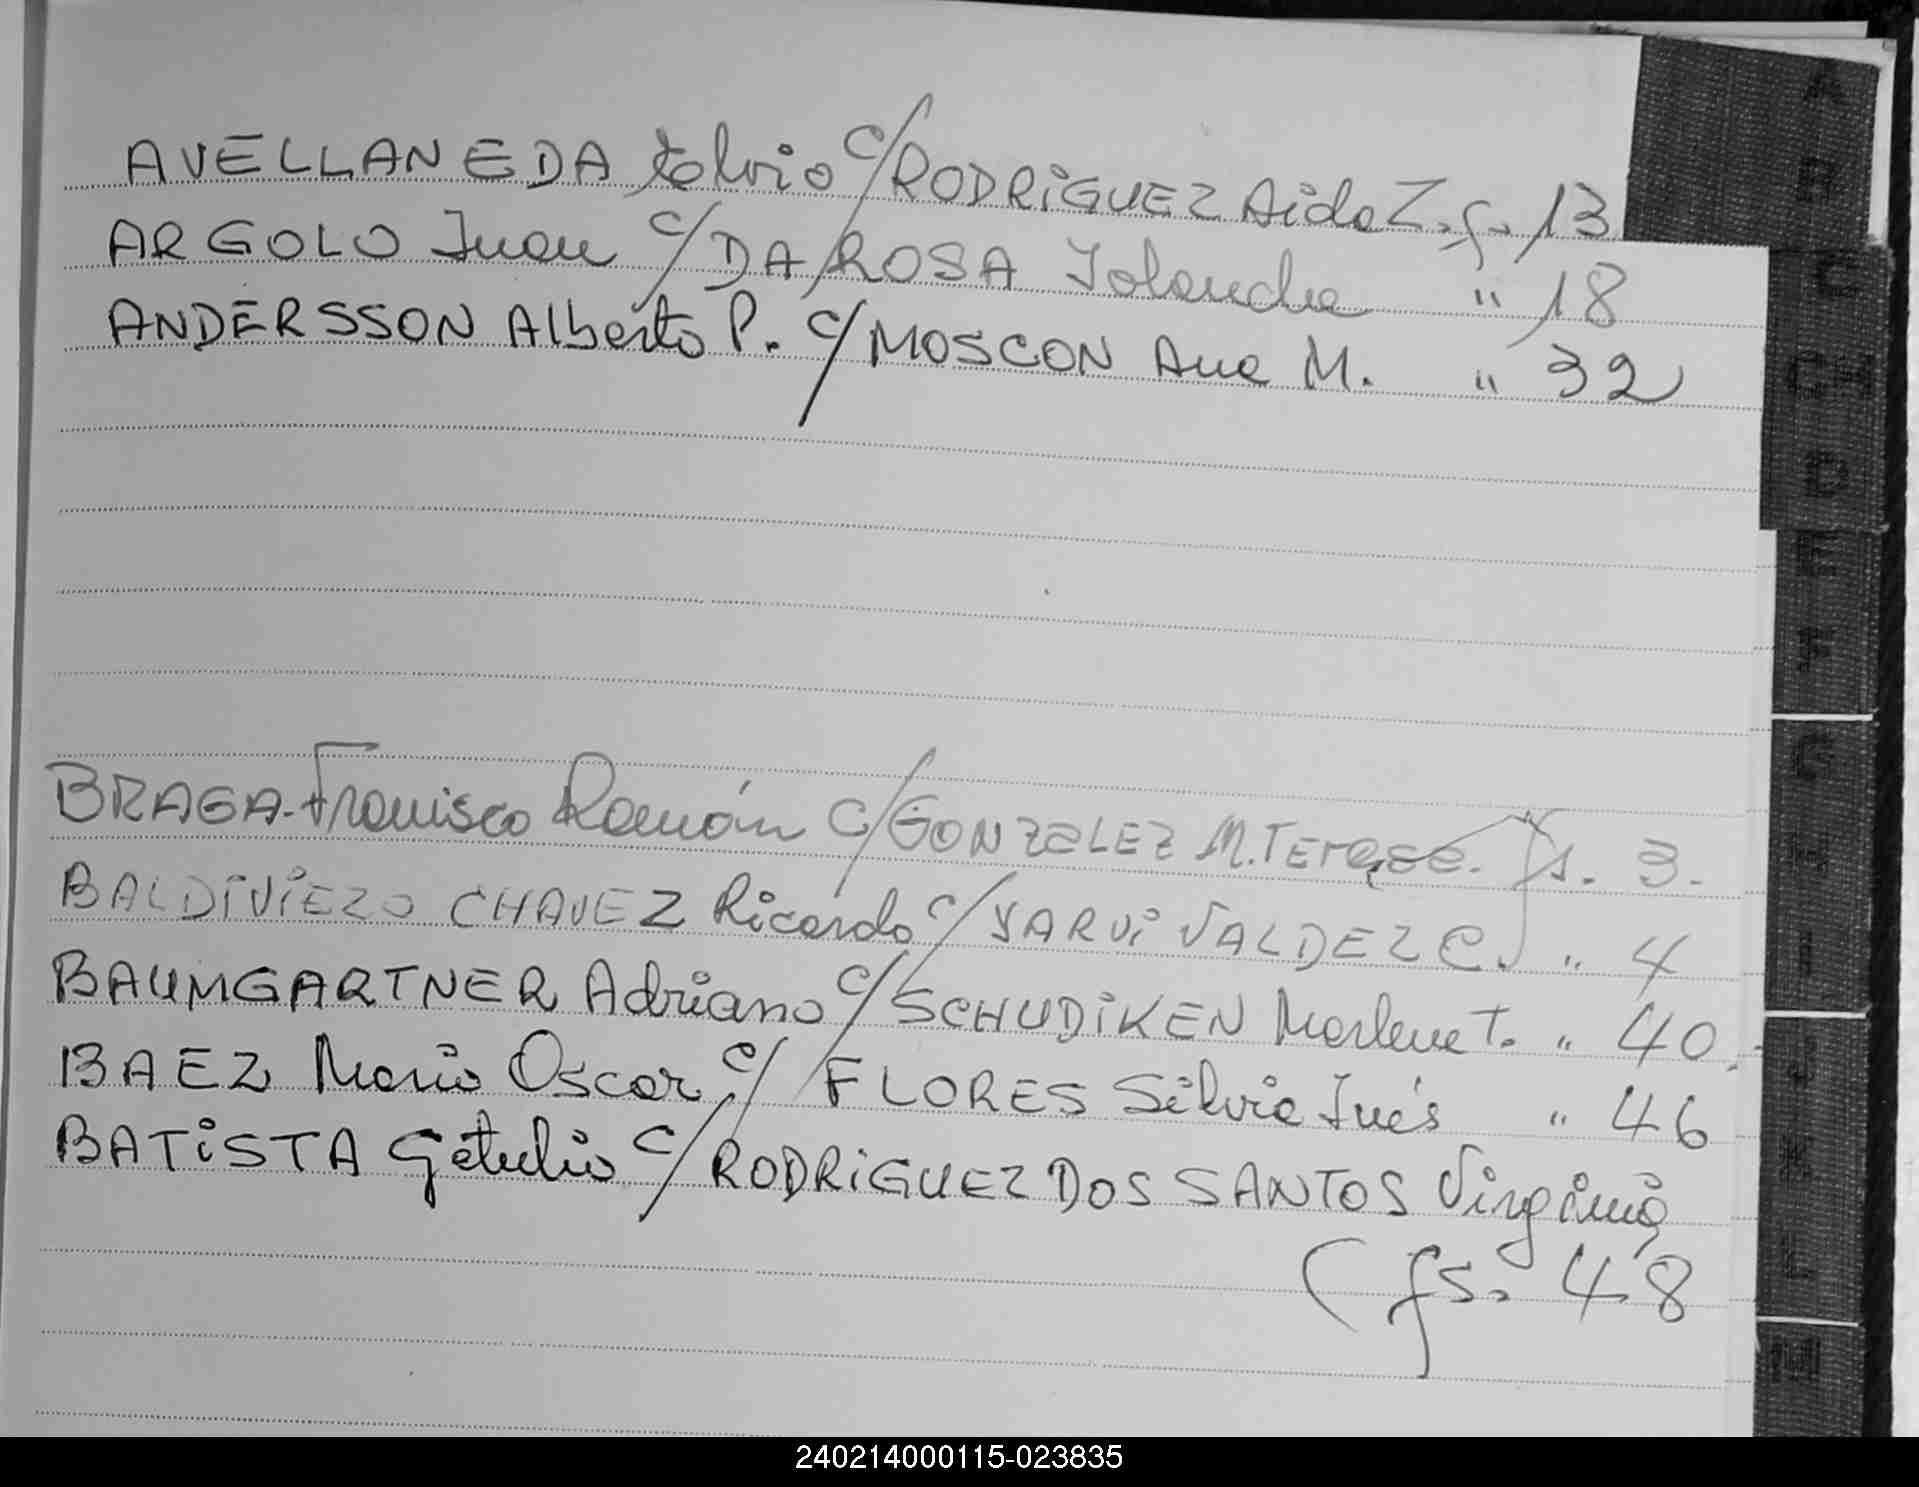 AVELLANEDA Silvio c/ RODRiGUEZ Aida Z. f. 13
ARGOLO Juan c/ DA ROSA Iolanda " 18
ANDERSSON Alberto P. c/ MOSCON Ana M. " 32
BRAGA - Francisco Ramón c/ GONZALEZ M. Teresa. fs. 3.
BALDiViEZO CHAVEZ Ricardo c/ YARVi VALDEZ C. " 4
BAUMGARTNER Adriano c/ SCHUDiKEN Marlene T. " 40.
BAEZ Mario Oscar c/ FLORES Silvia Inés " 46
BATiSTA Getulio c/ RODRiGUEZ DOS SANTOS Virginia
( fs. 48
A
B
C
CH
D
E
F
G
H
I
J
K
L
M
240214000115-023835